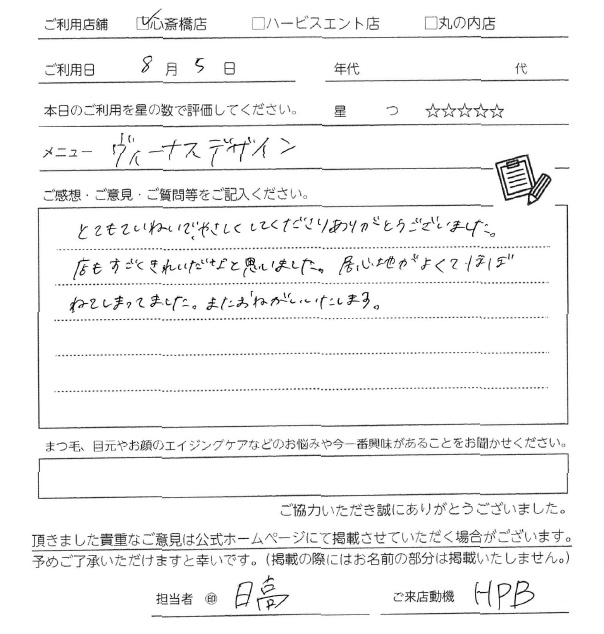 ご利用店舗 ☑心斎橋店 □ハービスエント店 □丸の内店
ご利用日 8 月 5 日 年代 代
本日のご利用を星の数で評価してください。 星 つ ☆☆☆☆☆
メニュー ヴィーナスデザイン
ご感想・ご意見・ご質問等をご記入ください。
とてもていねいで、やさしくしてくださりありがとうございました。
店もすごくきれいだなと思いました。居心地がよくてほぼ
ねてしまってました。またおねがいいたします。
まつ毛、目元やお顔のエイジングケアなどのお悩みや今一番興味があることをお聞かせください。
ご協力いただき誠にありがとうございました。
頂きました貴重なご意見は公式ホームページにて掲載させていただく場合がございます。
予めご了承いただけますと幸いです。(掲載の際にはお名前の部分は掲載いたしません。)
担当者 ㊞ 日高 ご来店動機 HPB